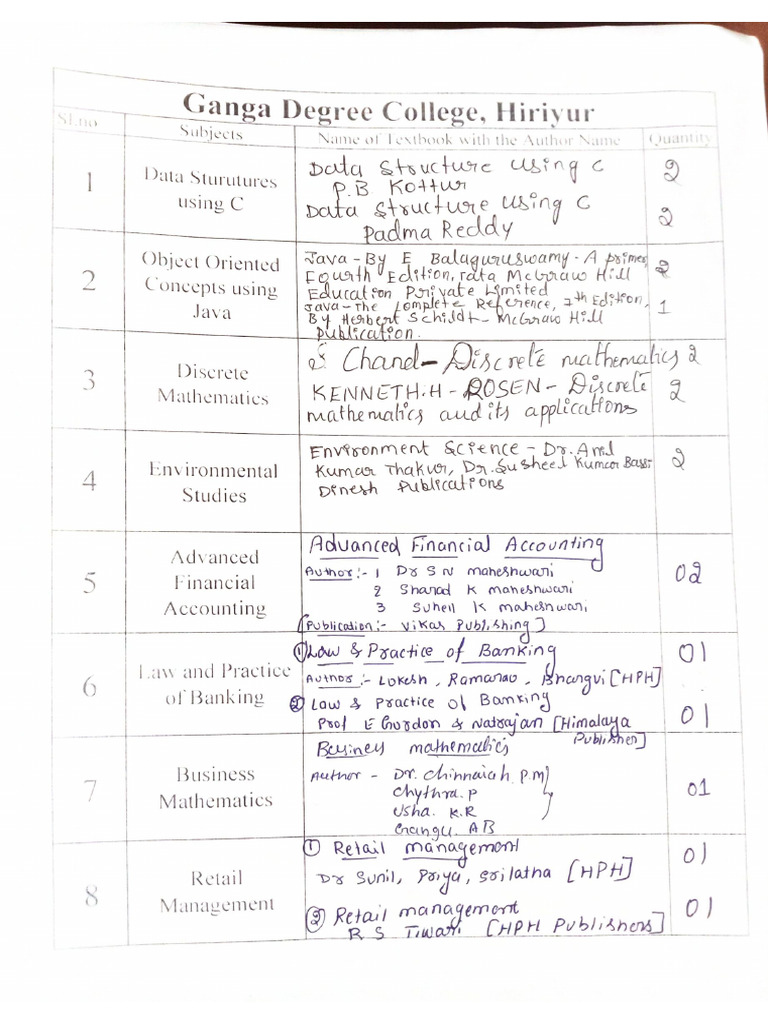 Ganga Degree College, Hiriyur
Sl.no Subjects Name of Textbook with the Author Name Quantity
1 Data Sturutures using C
Data Structure using C 2
P.B Kottur
Data Structure using C 2
Padma Reddy
2 Object Oriented Concepts using Java
Java - By E Balaguruswamy - A primer, 2
Fourth Edition, Tata McGraw Hill
Education Private Limited
Java - The Complete Reference, 7th Edition, 1
By Herbert Schildt - McGraw Hill
Publication.
3 Discrete Mathematics
S Chand - Discrete mathematics 2
KENNETH.H - ROSEN - Discrete 2
mathematics and its applications
4 Environmental Studies
Environment Science - Dr. Anil 2
Kumar Thakur, Dr. Susheel Kumar Bassi
Dinesh Publications
5 Advanced Financial Accounting
Advanced Financial Accounting
Author :- 1 Dr S N maheshwari 02
2 Sharad K maheshwari
3 Suheil K maheshwari
[Publication :- Vikas Publishing]
6 Law and Practice of Banking
① Law & Practice of Banking 01
Author :- Lokesh, Ramarao, Bhargvi [HPH]
② Law & Practice of Banking 01
Prof E Gordon & Natrajan [Himalaya
Publisher]
7 Business Mathematics
Businey mathematics
Author - Dr. Chinnaiah P.M 01
Chythra. P
Usha. K.R
Gangu. A B
8 Retail Management
① Retail management 01
Dr Sunil, Priya, Srilatha [HPH]
② Retail management 01
R S Tiwari [HPH Publishers]